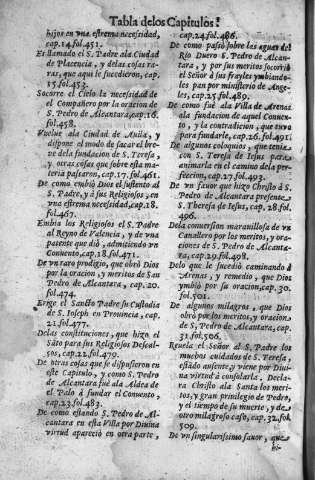 Tabla delos Capitulos!
hijos en vna estrema necesidad,
cap.14.fol.451.
Es llamado el S. Padre ala Ciudad
de Placencia, y delas cosas ra-
ras, que aqui le sucedieron, cap.
15.fol.453.
Socorre el Cielo la necesidad de
el Compañero por la oracion de
S. Pedro de Alcantara,cap.16.
fol.458.
Vuelue ala Ciudad de Auila, y
dispone el modo de sacar el bre-
ve dela fundacion de S. Teresa,
y otras cosas que sobre esta ma-
teria pasaron,cap.17. fol.461.
De como embiò Dios el sustento al
S. Padre, y à sus Religiosos, en
vna estrema necesidad,cap.18.
fol.467.
Embia los Religiosos el S. Padre
al Reyno de Valencia, y de vna
patente que diò, admitiendo vn
Conuento,cap.18.fol.471.
De vn raro prodigio, que obrò Dios
por la oracion, y meritos de San
Pedro de Alcantara, cap. 20.
fol.474.
Erige el Sancto Padre su Custodia
de S. Ioseph en Prouncia, cap.
21.fol.477.
Delas constituciones, que hizo el
Sãto para sus Religiosos Descal-
sos, cap.22.fol.479.
De otras cosas que se dispusieron en
este Capitulo, y como S. Pedro
de Alcantara fuè ala Aldea de
el Palo à fundar el Conuento,
cap.23.fol.483.
De como estando S. Pedro de Al-
cantara en esta Villa por Diuina
virtud apareciò en otra parte,
cap.24.fol.486.
De como pasò sobre las aguas del
Rio Duero S. Pedro de Alcan-
tara, y por sus meritos socorriò
el Señor à sus frayles ymbiando-
les pan por ministerio de Ange-
les, cap.25.fol.489.
De como fuè ala Villa de Arenas
ala fundacion de aquel Conuen-
to, y la contradicion, que tuvo
para fundarle, cap.26.fol.491.
De algunos coloquios, que tenia
con S. Teresa de Iesus para
animarla en el camino dela per-
feccion,cap.27.fol.493.
De vn favor que hizo Christo à S.
Pedro de Alcantara presente
S. Theresa de Iesus, cap. 28.fol.
496.
Dela conuersion marauillosa de vn
Cauallero por los meritos, y ora-
cion de S. Pedro de Alcanta-
ra, cap.29.fol.498.
Delo que le sucediò caminando à
Arenas, y remedio, que Dios
ymbiò por su oracion,cap.30.
fol.501.
De algunos milagros, que Dios
obrò por los meritos, y oracion
de S. Pedro de Alcantara, cap.
31.fol.506.
Reuela el Señor al S. Padre los
muchos cuidados de S. Teresa,
estádo ausente,y viene por Diui-
na virtud à consolarla, Decla-
ra Christo ala Santa los meri-
tos,y gran privilegio de Pedro,
y el tiempo de su muerte, y de
otro milagroso caso, cap.32.fol.
509.
De vn singularissimo favor, que
hi-